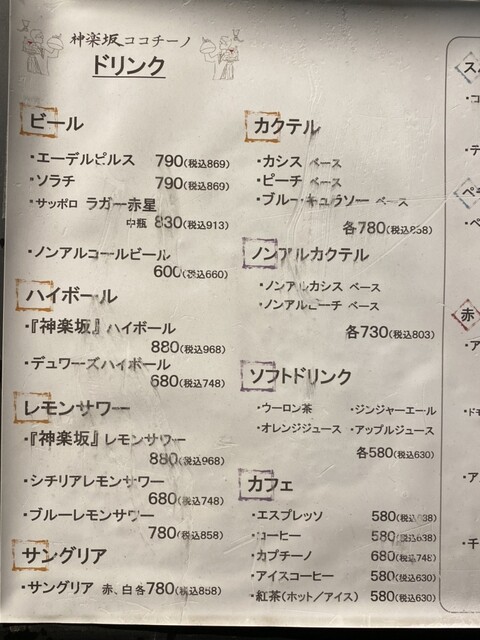 神楽坂ココチーノ
ドリンク
ビール
・エーデルピルス 790(税込869)
・ソラチ 790(税込869)
・サッポロ ラガー赤星
中瓶 830(税込913)
・ノンアルコールビール
600(税込660)
ハイボール
・『神楽坂』ハイボール
880(税込968)
・デュワーズハイボール
680(税込748)
レモンサワー
・『神楽坂』レモンサワー
880(税込968)
・シチリアレモンサワー
680(税込748)
・ブルーレモンサワー
780(税込858)
サングリア
・サングリア 赤、白各780(税込858)
カクテル
・カシス ベース
・ピーチ ベース
・ブルーキュラソー ベース
各780(税込858)
ノンアルカクテル
・ノンアルカシス ベース
・ノンアルピーチ ベース
各730(税込803)
ソフトドリンク
・ウーロン茶 ・ジンジャーエール
・オレンジジュース ・アップルジュース
各580(税込630)
カフェ
・エスプレッソ 580(税込638)
・コーヒー 580(税込638)
・カプチーノ 680(税込748)
・アイスコーヒー 580(税込630)
・紅茶(ホット/アイス) 580(税込630)
赤